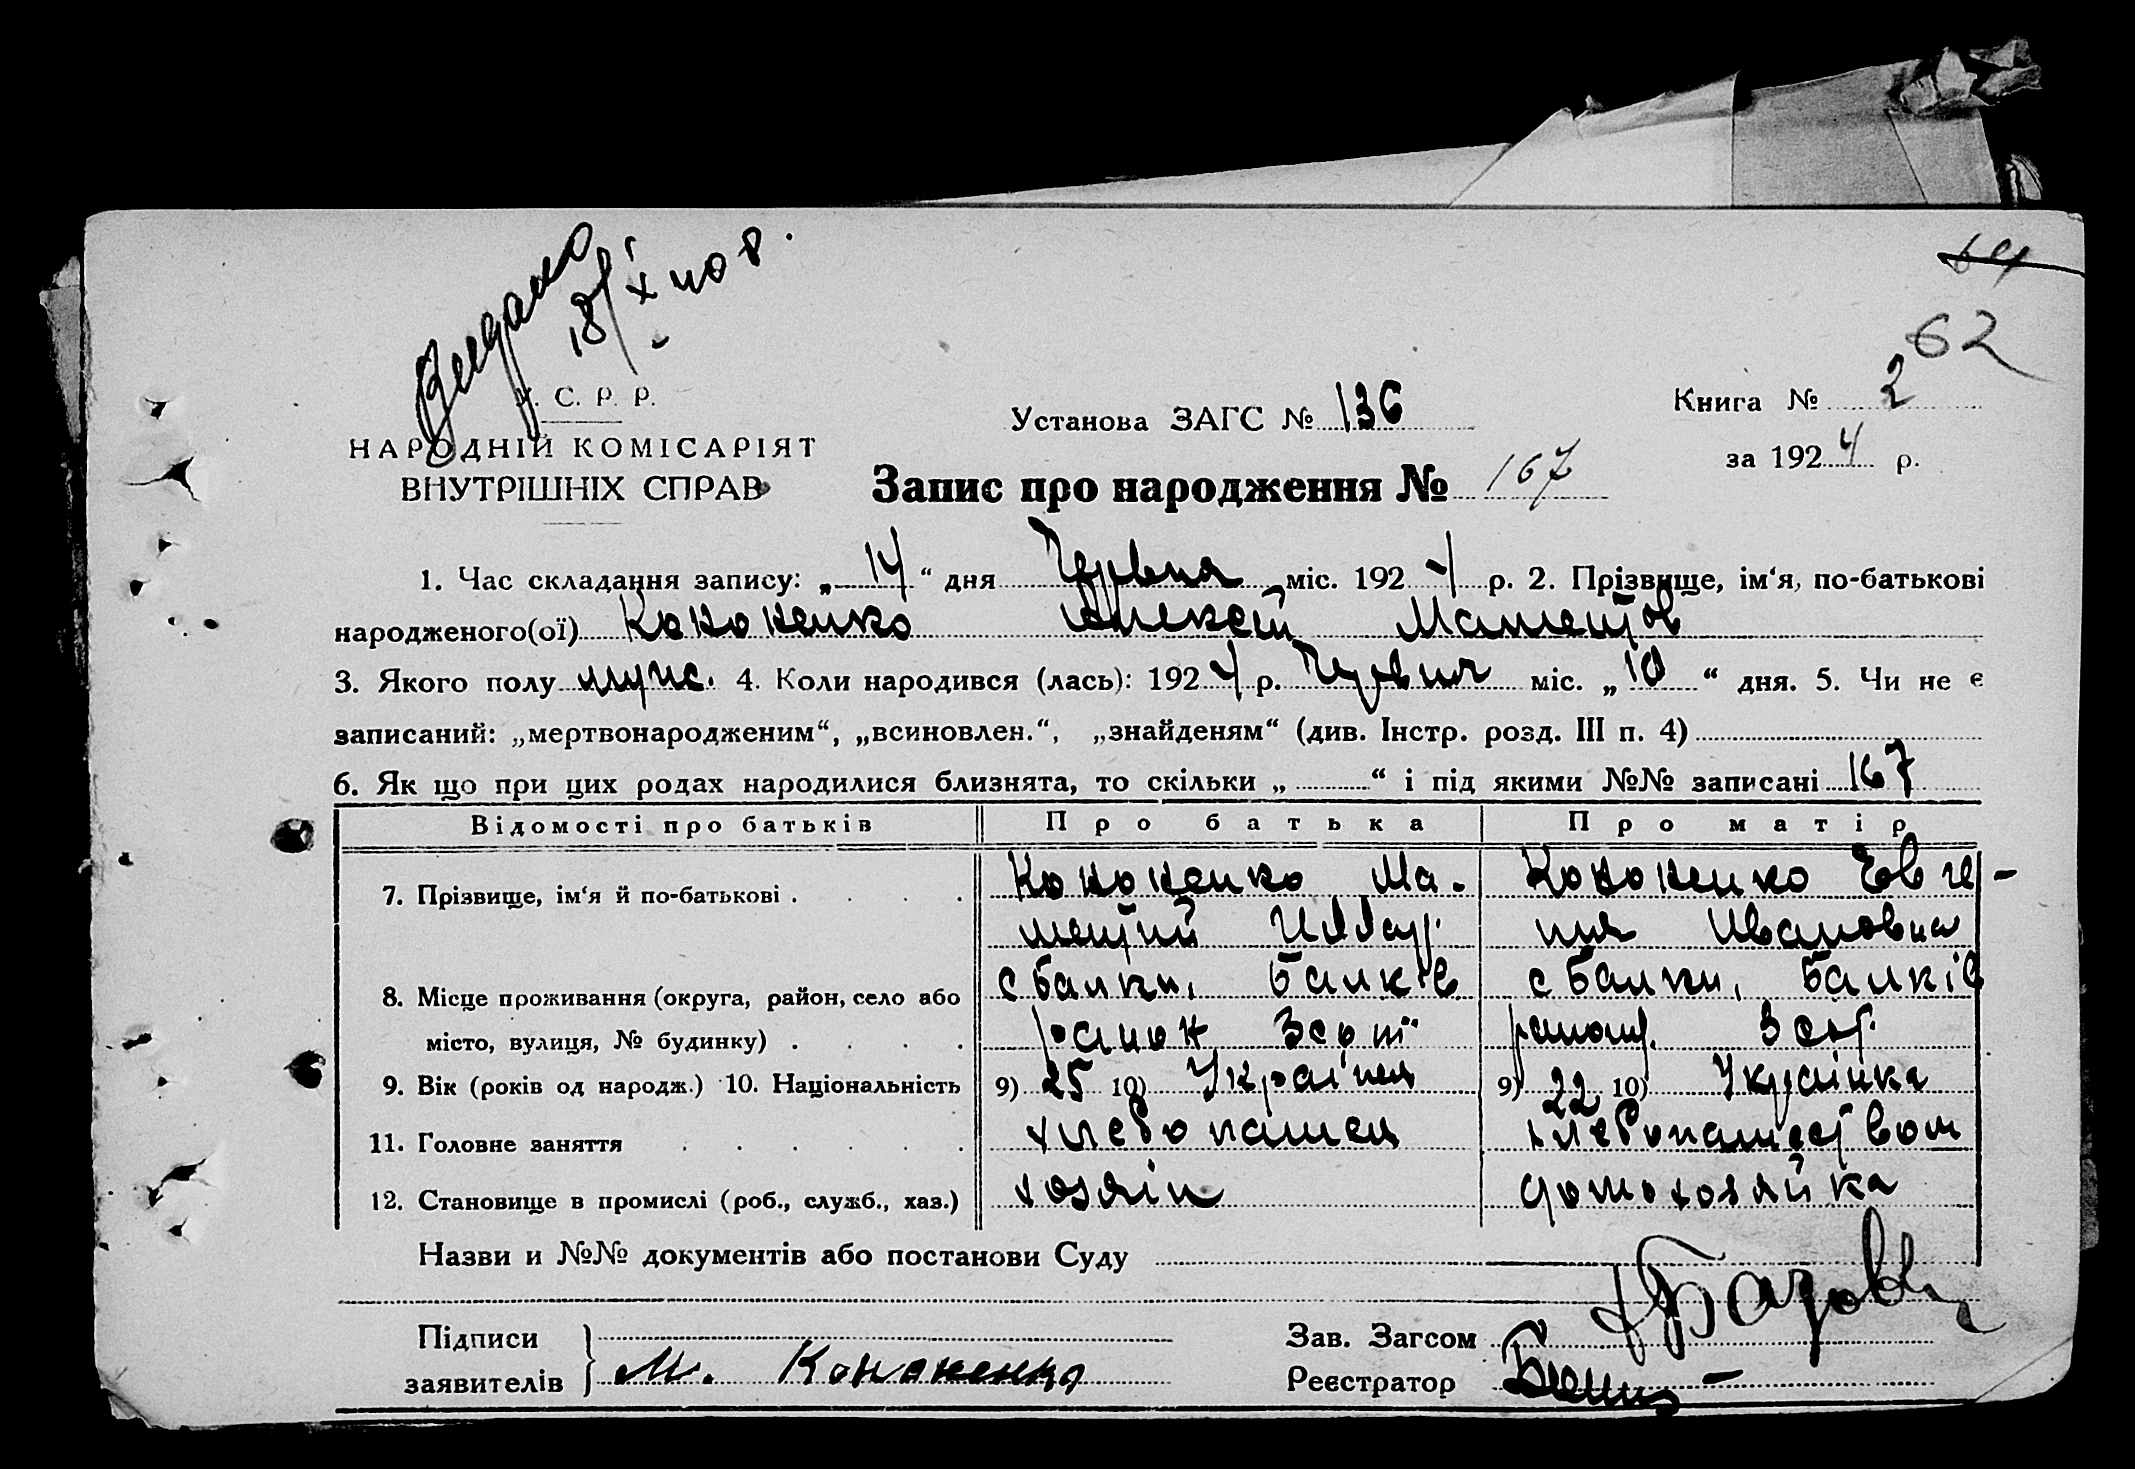 Видано
18/X по в.
64
62
У. С. Р. Р.
НАРОДНІЙ КОМІСАРІЯТ
ВНУТРІШНІХ СПРАВ
Установа ЗАГС № 136
Книга № 2
за 1924 р.
Запис про народження № 167
1. Час складання запису: „ 14 “ дня Червня міс. 1924 р. 2. Прізвище, ім‘я, по-батькові
народженого(ої) Кононенко Алексей
3. Якого полу муж. 4. Коли народився (лась): 1924 р. Червня міс. „ 10 “ дня. 5. Чи не є
записаний: „мертвонародженим“, „всиновлен.“, „знайденям“ (див. Інстр. розд. III п. 4)
6. Як що при цих родах народилися близнята, то скільки „ “ і під якими №№ записані 167
Відомості про батьків Про батька Про матір
7. Прізвище, ім‘я й по-батькові . . . . Кононенко Ма- Кононенко Евге-
ния Ивановна
8. Місце проживання (округа, район, село або с Балки, Балків с Балки, Балків
місто, вулиця, № будинку) . . . . район
9. Вік (років од народж.) 10. Національність 9) 25 10) Українец 9) 22 10) Українка
11. Головне заняття . . . . . . хлебопашец хлебопашеством
12. Становище в промислі (роб., служб., хаз.) хозяін домохозяйка
Назви и №№ документів або постанови Суду
Підписи
заявителів } М. Кононенко
Зав. Загсом
Реєстратор